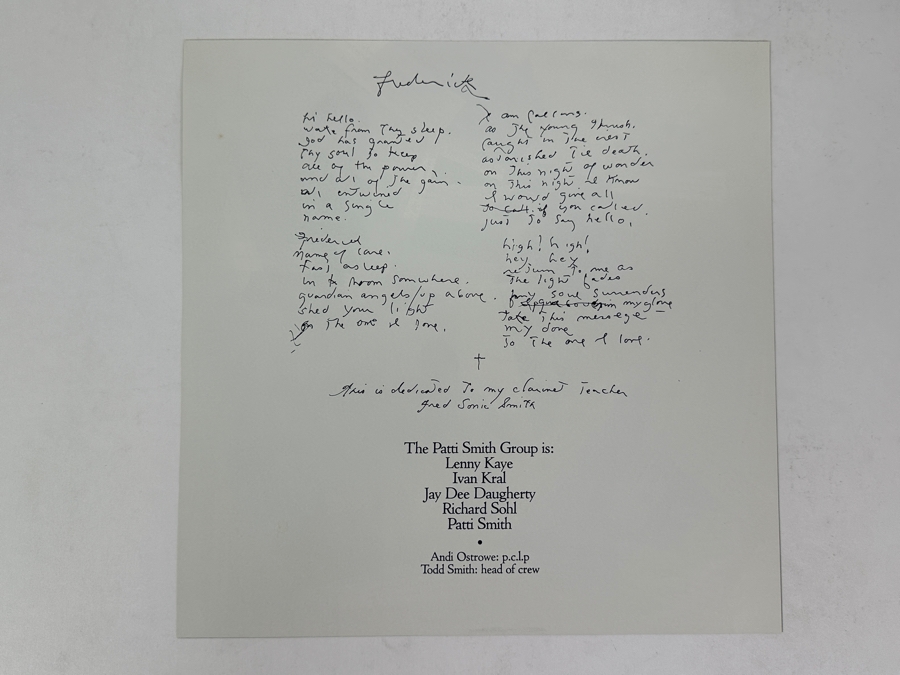 frederick
hi hello.
wake from thy sleep.
god has granted
thy soul to keep
all of the power
and all of the gain.
all entwined
in a single
name.
Frederick
name of care.
fast asleep.
in a room somwhere.
guardian angels/up above.
shed your light
on the one I love.
I am falling.
as the young thrush.
caught in the
astonished til death.
on this night of wonder
on this night I know
I would give all
if you called.
just to say hello.
high! high!
hey hey
return to me as
the light fades
my soul surrenders
my glove
take this message
my dove
to the one I love.
†
this is dedicated to my clarinet teacher
fred sonic smith
The Patti Smith Group is:
Lenny Kaye
Ivan Kral
Jay Dee Daugherty
Richard Sohl
Patti Smith
•
Andi Ostrowe: p.c.l.p
Todd Smith: head of crew